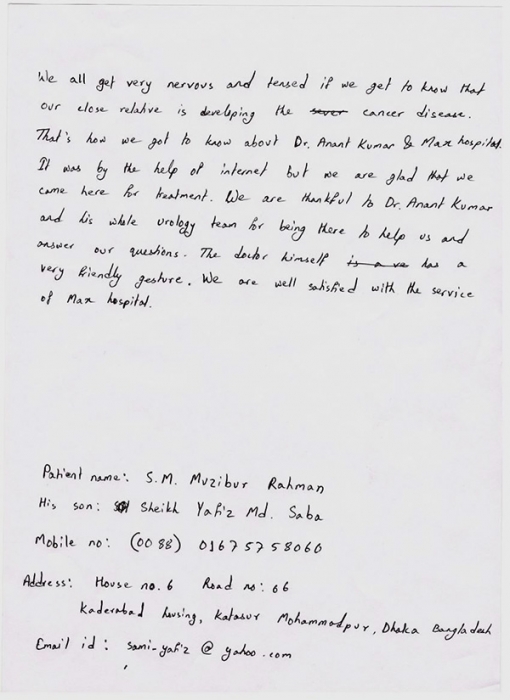 We all get very nervous and tensed if we get to know that
our close relative is developing the sever cancer disease.
That's how we got to know about Dr. Anant Kumar & Max hospital.
It was by the help of internet but we are glad that we
came here for treatment. We are thankful to Dr. Anant Kumar
and his whole urology team for being there to help us and
answer our questions. The doctor himself is a ve has a
very friendly gesture. We are well satisfied with the service
of Max hospital.
Patient name: S.M. Muzibur Rahman
His son: Sheikh Yafiz Md. Saba
Mobile no: (0088) 01675758060
Address: House no. 6 Road no: 66
Kaderabad housing, Katasur Mohammadpur, Dhaka Bangladesh
Email id: sami-yafiz@yahoo.com